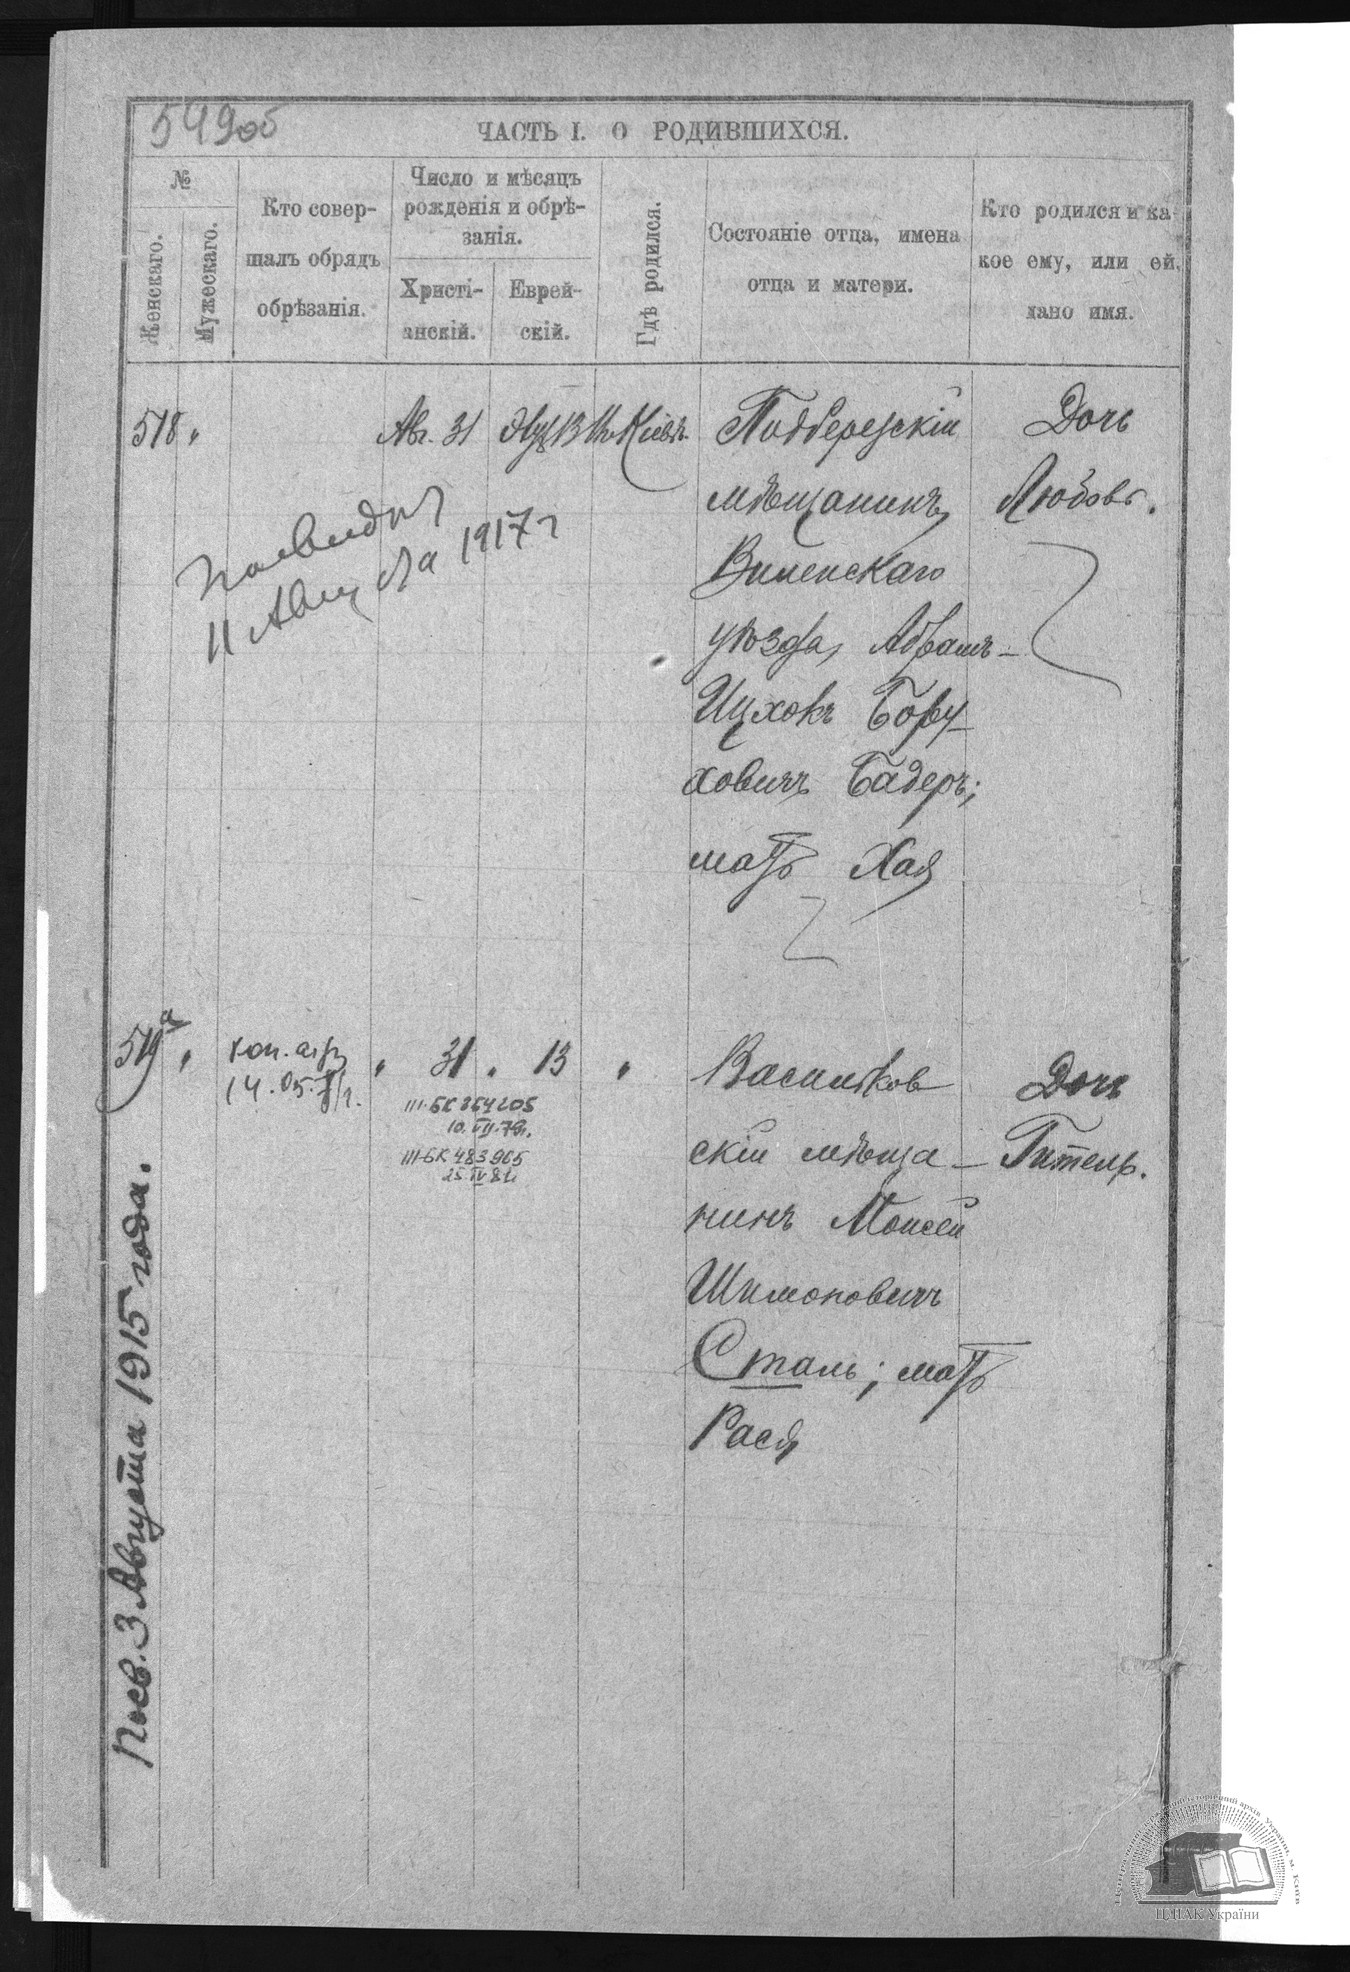 549об
ЧАСТЬ I. О РОДИВШИХСЯ.
№
Женскаго.
Мужескаго.
Кто совер-
шалъ обрядъ
обрѣзанія.
Число и мѣсяцъ
рожденія и обрѣ-
занія.
Христі-
анскій.
Еврей-
скій.
Гдѣ родился.
Состояніе отца, имена
отца и матери.
Кто родился и ка
кое ему, или ей,
дано имя.
518 „
Авг. 31
13
Кіевѣ.
Подберезскій
мѣщанинъ
Виленскаго
уѣзда, Абрамъ-
Ицхокъ Бору-
ховичъ Бадеръ;
мать Хая
Дочь
Любовь.
11 Августа 1917 г
519а „
14.05.
„ 31 „ 13 „
III-БК 364205
10. VII. 78г.
III-БК 483965
25 IV 81г.
Васильков
скій мѣща-
нинъ Моисей
Шимоновичъ
Сталь; мать
Рася
Дочь
Гитель.
3 Августа 1915 года.
ЦДІАК України